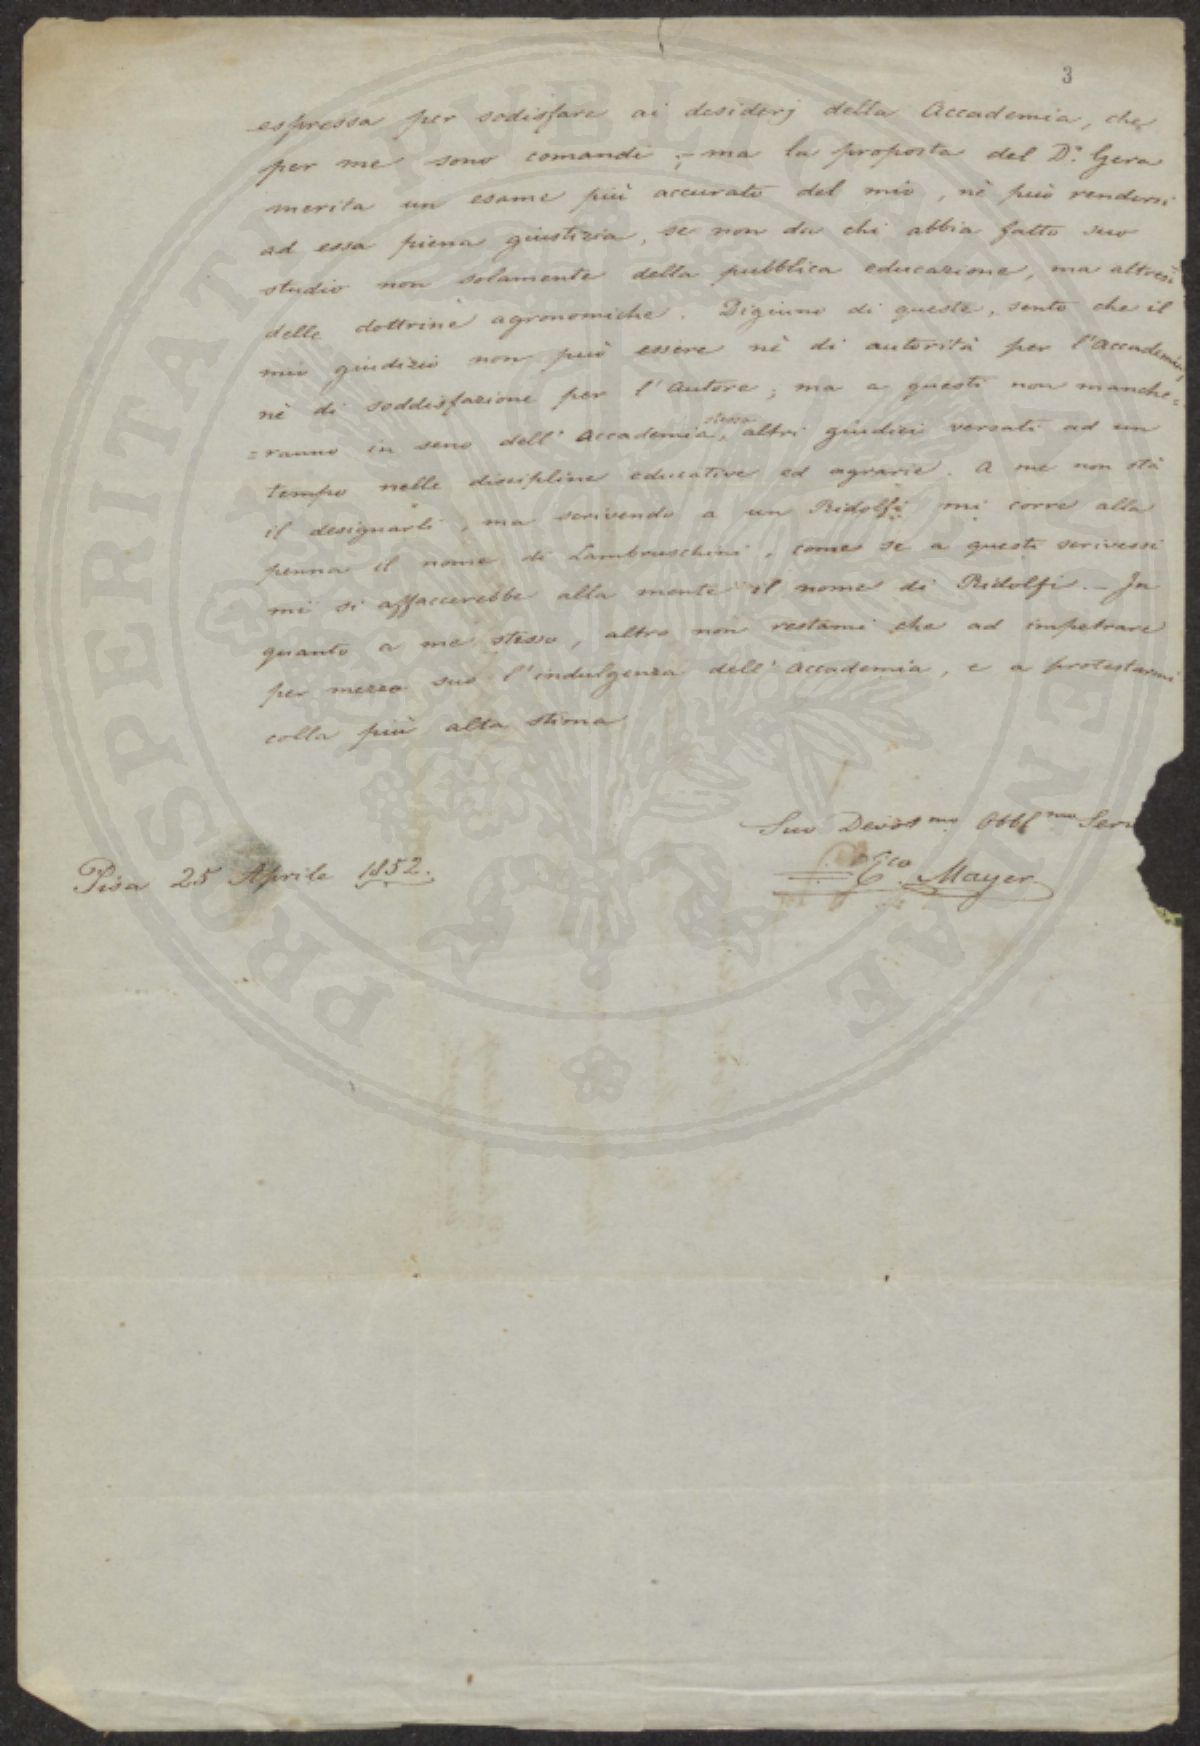 3
espressa per sodisfare ai desiderj della Accademia, che
per me sono comandi ; – ma la proposta del Dr. Gera
merita un esame più accurato del mio, nè può rendersi
ad essa piena giustizia, se non da chi abbia fatto suo
studio non solamente della pubblica educazione, ma altresì
delle dottrine agronomiche. Digiuno di queste, sento che il
mio giudizio non può essere nè di autorità per l'Accademia,
nè di soddisfazione per l'Autore; ma a questi non manche=
=ranno in seno dell'Accademia stessa, altri giudici versati ad un
tempo nelle discipline educative ed agrarie. A me non stà
il designarli, ma scrivendo a un Ridolfi mi corre alla
penna il nome di Lambruschini, come se a questi scrivessi
mi si affaccerebbe alla mente il nome di Ridolfi. – In
quanto a me stesso, altro non restami che ad impetrare
per mezzo suo l'indulgenza dell'Accademia, e a protestarmi
colla più alta stima
Suo Devotmo. Obblmo Serv
Pisa 25 Aprile 1852.
Eco Mayer
PROSPERITATI PUBLICAE AUGENDAE